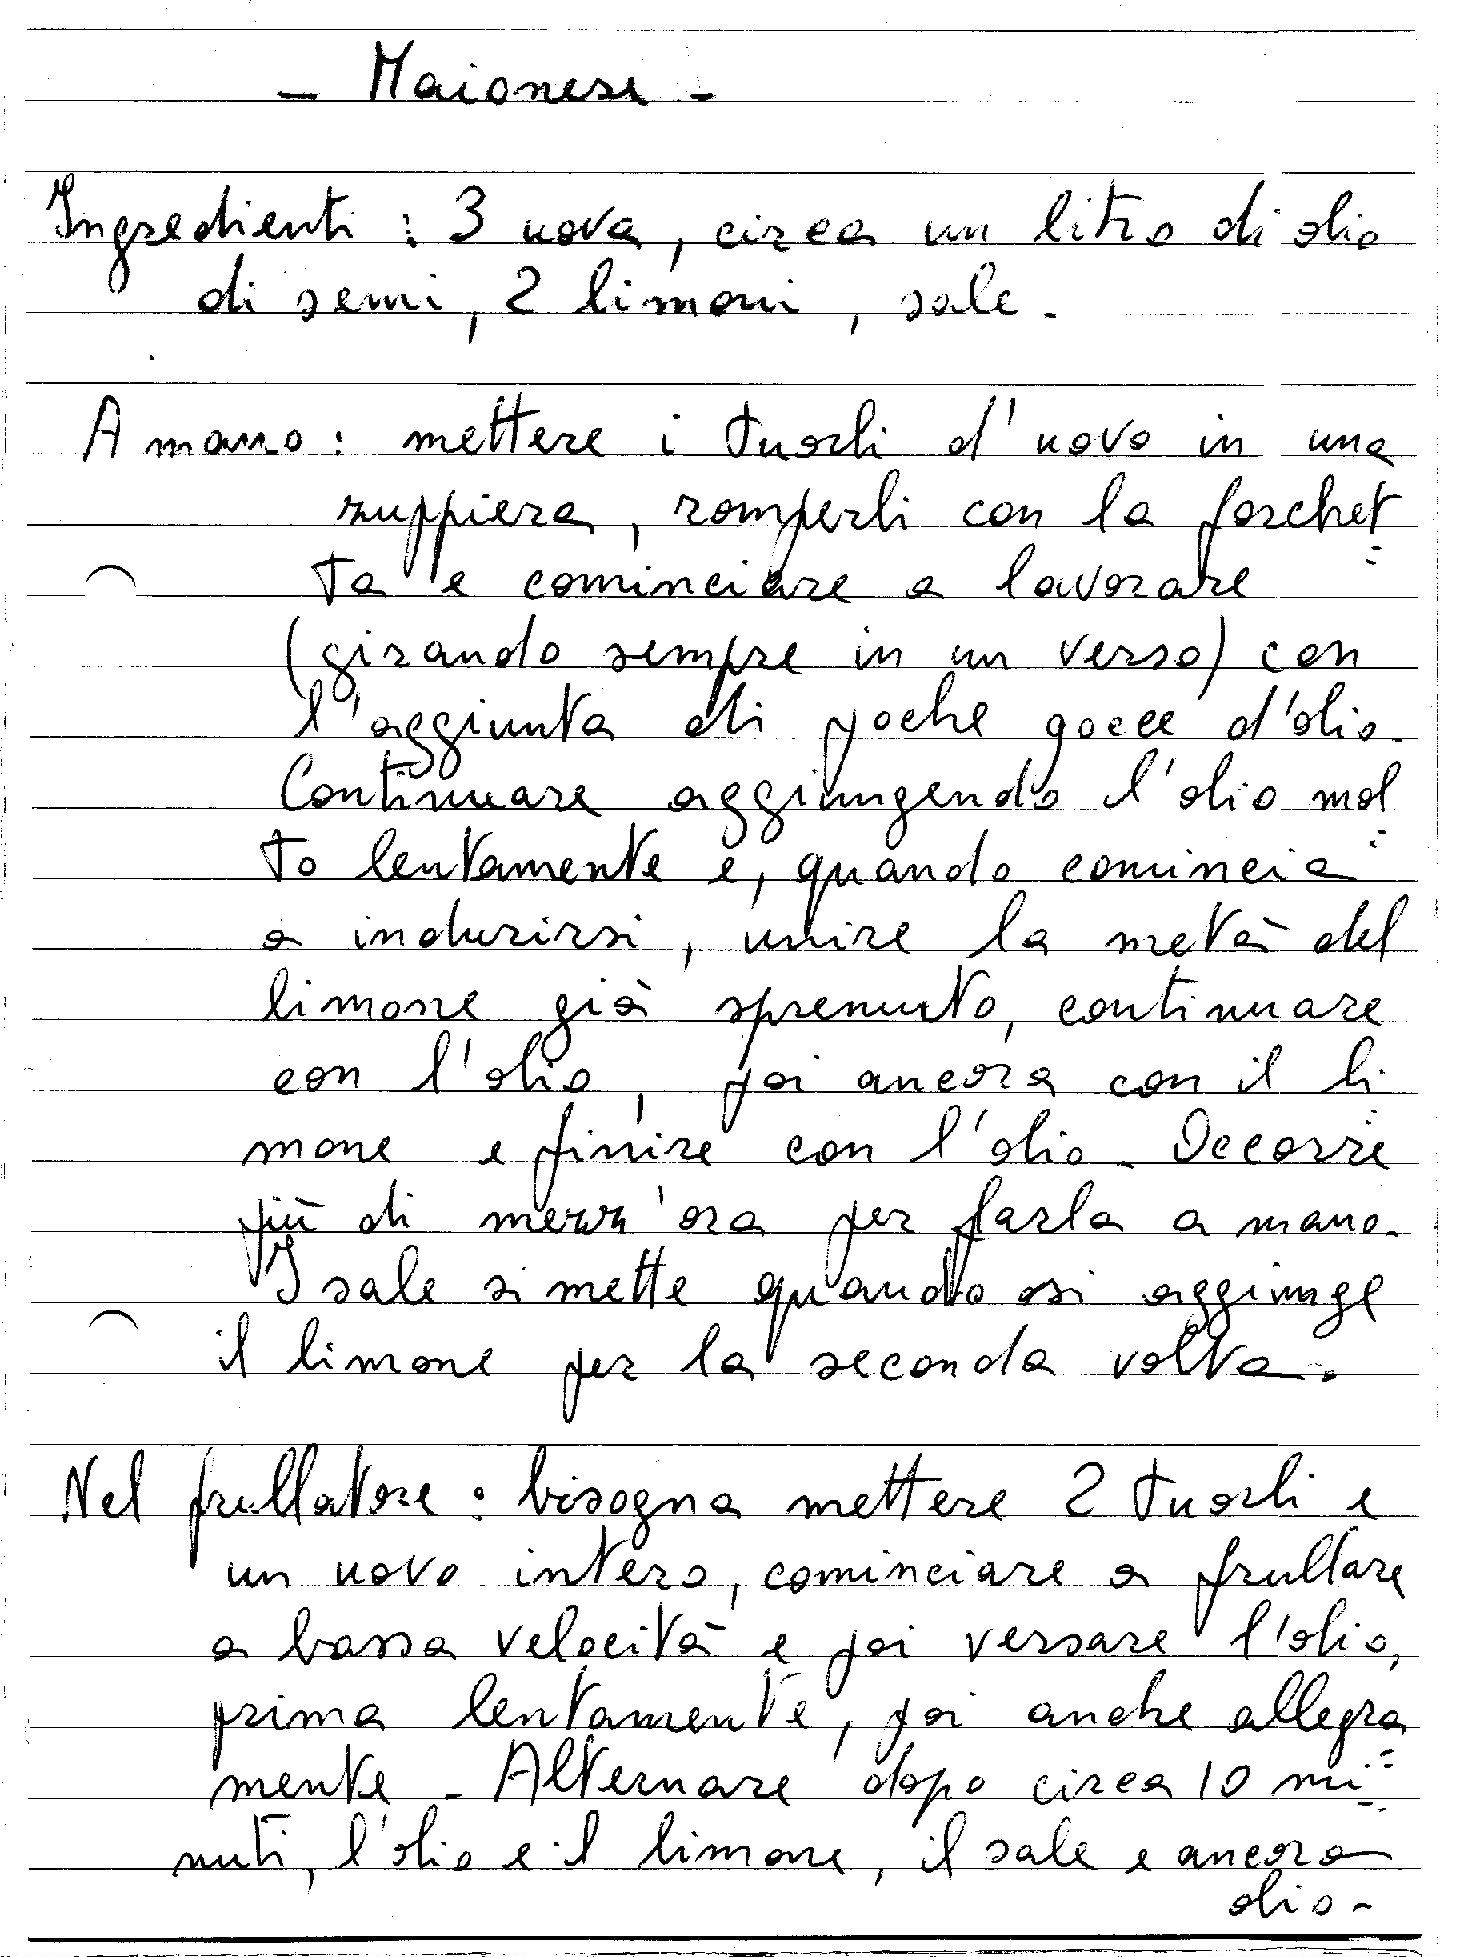 - Maionese -
Ingredienti : 3 uova, circa un litro di olio
di semi, 2 limoni, sale.
A mano : mettere i tuorli d'uovo in una
zuppiera, romperli con la forchet=
ta e cominciare a lavorare
(girando sempre in un verso) con
l'aggiunta di poche gocce d'olio.
Continuare aggiungendo l'olio mol=
to lentamente e, quando comincia
a indurirsi, unire la metà del
limone già spremuto, continuare
con l'olio, poi ancora con il li=
mone e finire con l'olio. Occorre
più di mezz'ora per farla a mano.
I sale si mette quando si aggiunge
il limone per la seconda volta.
Nel frullatore : bisogna mettere 2 tuorli e
un uovo intero, cominciare a frullare
a bassa velocità e poi versare l'olio,
prima lentamente, poi anche allegra=
mente - Alternare dopo circa 10 mi=
nuti, l'olio e il limone, il sale e ancora
olio -